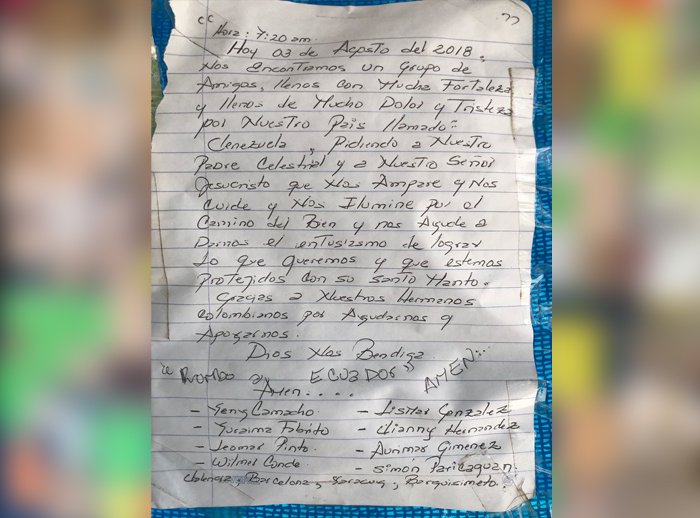 “ ”
Hora: 7:20 am.
Hoy 03 de Agosto del 2018,
Nos Encontramos un Grupo de
Amigos, llenos con Mucha Fortaleza
y llenos de Mucho Dolor y Tristeza
por Nuestro Pais llamado:
Venezuela, Pidiendo a Nuestro
Padre Celestial y a Nuestro Señor
Jesucristo que Nos Ampare y Nos
Cuide y Nos Ilumine por el
Camino del Bien y nos Ayude a
Darnos el entusiasmo de lograr
Lo que queremos y que estemos
Protejidos con su Santo Manto.
Gracias a Nuestros Hermanos
Colombianos por Ayudarnos y
Apoyarnos.
Dios Nos Bendiga
"Rumbo a ECUADOR" AMEN...
Amen....
- Yeny Camacho - Lismar Gonzalez
- Yuraima Fabrito - Lianny Hernandez
- Leomar Pinto. - Aunmar Gimenez
- Wilmer Conde. - Simon Paricaguan.
Valencia, Barcelona, Yaracuy, Barquisimeto.